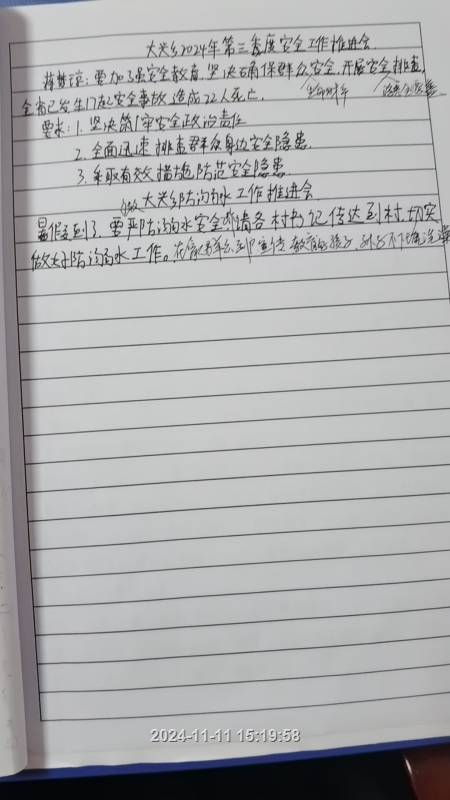 大关乡2024年第三季度安全工作推进会
要加强安全教育，坚决确保群众安全，开展安全排查，
生命财产
全省已发生17起安全事故，造成22人死亡．
要求：1. 坚决第1牢安全政治责任
2. 全面迅速排查群众身边安全隐患
3. 采取有效措施防范安全隐患
大关乡防溺水工作推进会
暑假到了，要严防溺水安全，请各村书记传达到村，切实
做好防溺水工作。在家 宣传教育 孩子，
2024-11-11 15:19:58